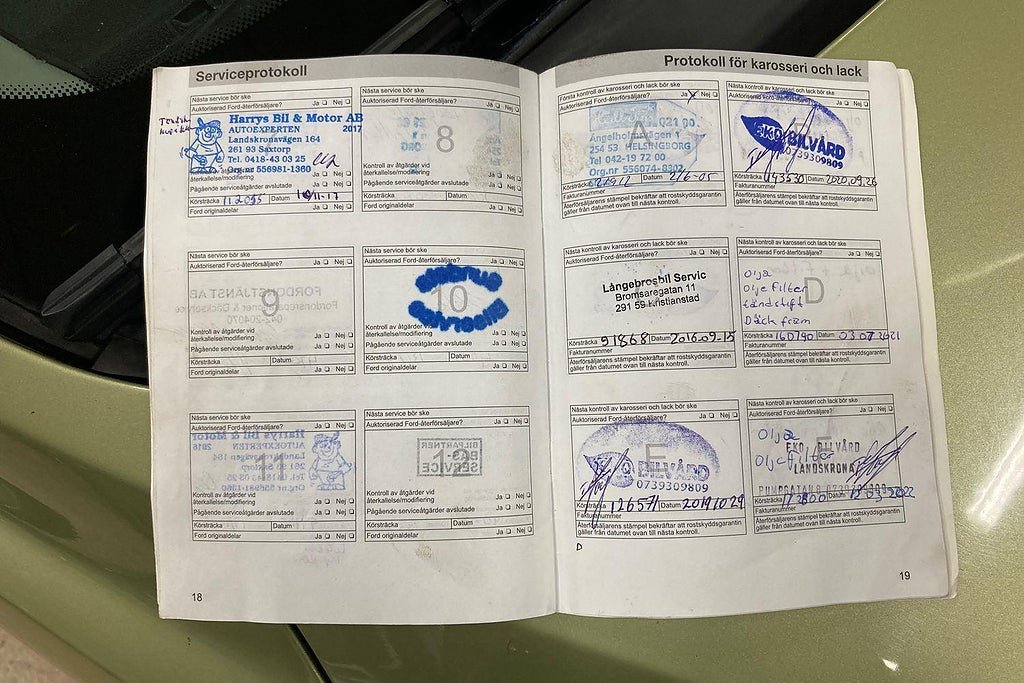 Serviceprotokoll
Nästa service bör ske
Auktoriserad Ford-återförsäljare? Ja Nej
Harrys Bil & Motor AB
AUTOEXPERTEN 2017
Landskronavägen 164
261 93 Saxtorp
Tel. 0418-43 03 25
Org.nr 556981-1360
återkallelse/modifiering Ja Nej
Pågående serviceåtgärder avslutade Ja Nej
Körsträcka 112095 Datum 10/11-17
Ford originaldelar Ja Nej
Nästa service bör ske
Auktoriserad Ford-återförsäljare? Ja Nej
8
Kontroll av åtgärder vid
återkallelse/modifiering Ja Nej
Pågående serviceåtgärder avslutade Ja Nej
Körsträcka Datum
Ford originaldelar Ja Nej
Nästa service bör ske
Auktoriserad Ford-återförsäljare? Ja Nej
9
Kontroll av åtgärder vid
återkallelse/modifiering Ja Nej
Pågående serviceåtgärder avslutade Ja Nej
Körsträcka Datum
Ford originaldelar Ja Nej
Nästa service bör ske
Auktoriserad Ford-återförsäljare? Ja Nej
10
Kontroll av åtgärder vid
återkallelse/modifiering Ja Nej
Pågående serviceåtgärder avslutade Ja Nej
Körsträcka Datum
Ford originaldelar Ja Nej
Nästa service bör ske
Auktoriserad Ford-återförsäljare? Ja Nej
11
Kontroll av åtgärder vid
återkallelse/modifiering Ja Nej
Pågående serviceåtgärder avslutade Ja Nej
Körsträcka Datum
Ford originaldelar Ja Nej
Nästa service bör ske
Auktoriserad Ford-återförsäljare? Ja Nej
12
BILPARTNER
SERVICE
Kontroll av åtgärder vid
återkallelse/modifiering Ja Nej
Pågående serviceåtgärder avslutade Ja Nej
Körsträcka Datum
Ford originaldelar Ja Nej
18
Protokoll för karosseri och lack
Första kontroll av karosseri och lack bör ske
Auktoriserad Ford-återförsäljare? Ja Nej
A
Ängelholmsvägen 1
254 53 HELSINGBORG
Tel 042-19 72 00
Org.nr 556074-8302
Körsträcka Datum
Fakturanummer
Återförsäljarens stämpel bekräftar att rostskyddsgarantin
gäller från datumet ovan till nästa kontroll.
Nästa kontroll av karosseri och lack bör ske
Auktoriserad Ford-återförsäljare? Ja Nej
EKO BILVÅRD
0739309809
Körsträcka 143530 Datum 2020.09.26
Fakturanummer
Återförsäljarens stämpel bekräftar att rostskyddsgarantin
gäller från datumet ovan till nästa kontroll.
Nästa kontroll av karosseri och lack bör ske
Auktoriserad Ford-återförsäljare? Ja Nej
Långebrosbil Servic
Bromsaregatan 11
291 59 Kristianstad
Körsträcka 91868 Datum 2016.09.15
Fakturanummer
Återförsäljarens stämpel bekräftar att rostskyddsgarantin
gäller från datumet ovan till nästa kontroll.
Nästa kontroll av karosseri och lack bör ske
Auktoriserad Ford-återförsäljare? Ja Nej
D
olja
olje filter
tändstift
Däck fram
Körsträcka 160790 Datum 03 07 2021
Fakturanummer
Återförsäljarens stämpel bekräftar att rostskyddsgarantin
gäller från datumet ovan till nästa kontroll.
Nästa kontroll av karosseri och lack bör ske
Auktoriserad Ford-återförsäljare? Ja Nej
E
EKO BILVÅRD
0739309809
Körsträcka 126571 Datum 2019 10 29
Fakturanummer
Återförsäljarens stämpel bekräftar att rostskyddsgarantin
gäller från datumet ovan till nästa kontroll.
D
Nästa kontroll av karosseri och lack bör ske
Auktoriserad Ford-återförsäljare? Ja Nej
Olja
EKO BILVÅRD
LANDSKRONA
Körsträcka 172800 Datum 12.03.2022
Fakturanummer
Återförsäljarens stämpel bekräftar att rostskyddsgarantin
gäller från datumet ovan till nästa kontroll.
19